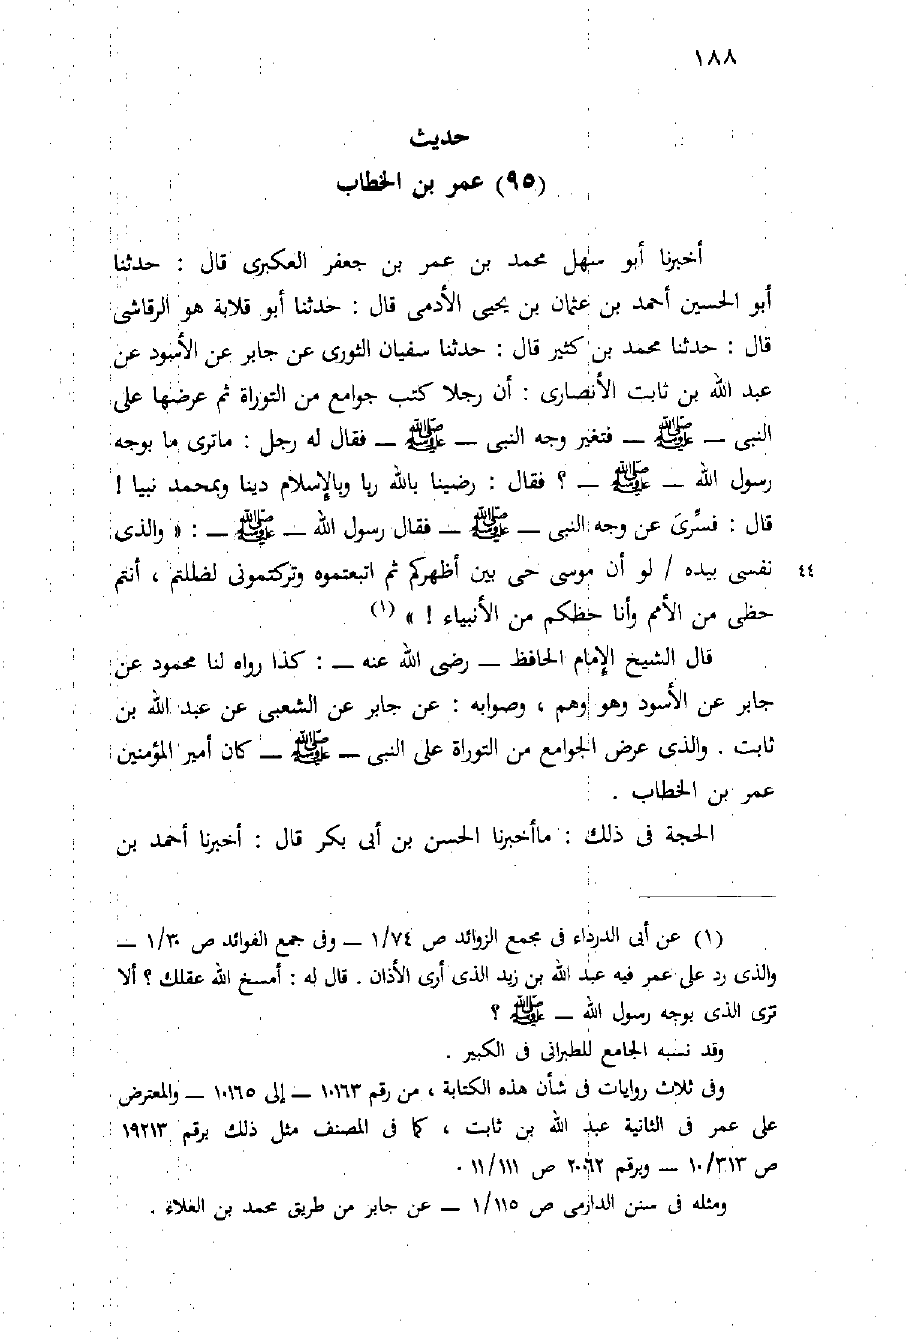 ١٨٨
حديث
(٩٥) عمر بن الخطاب
أخبرنا أبو سهل محمد بن عمر بن جعفر العكبرى قال : حدثنا
أبو الحسين أحمد بن عثمان بن يحيى الأدمى قال : حدثنا أبو قلابة هو الرقاشى
قال : حدثنا محمد بن كثير قال : حدثنا سفيان الثورى عن جابر عن الأسود عن
عبد الله بن ثابت الأنصارى : أن رجلا كتب جوامع من التوراة ثم عرضها على
النبى — ﷺ — فتغير وجه النبى — ﷺ — فقال له رجل : ماترى ما بوجه
رسول الله — ﷺ — ؟ فقال : رضينا بالله ربا وبالإسلام دينا وبمحمد نبيا !
قال : فسرِّىَ عن وجه النبى — ﷺ — فقال رسول الله — ﷺ — : « والذى
٤٤ نفسى بيده / لو أن موسى حى بين أظهركم ثم اتبعتموه وتركتمونى لضللتم ، أنتم
حظى من الأمم وأنا حظكم من الأنبياء ! » (١)
قال الشيخ الإمام الحافظ — رضى الله عنه — : كذا رواه لنا محمود عن
جابر عن الأسود وهو وهم ، وصوابه : عن جابر عن الشعبى عن عبد الله بن
ثابت . والذى عرض الجوامع من التوراة على النبى — ﷺ — كان أمير المؤمنين
عمر بن الخطاب .
الحجة فى ذلك : ماأخبرنا الحسن بن أبى بكر قال : أخبرنا أحمد بن
(١) عن أبى الدرداء فى مجمع الزوائد ص ١/٧٤ — وفى جمع الفوائد ص ١/٣٠ —
والذى رد على عمر فيه عبد الله بن زيد الذى أرى الأذان . قال له : أمسخ الله عقلك ؟ ألا
ترى الذى بوجه رسول الله — ﷺ ؟
وقد نسبه الجامع للطبرانى فى الكبير .
وفى ثلاث روايات فى شأن هذه الكتابة ، من رقم ١٠١٦٣ — إلى ١٠١٦٥ — والمعترض
على عمر فى الثانية عبد الله بن ثابت ، كما فى المصنف مثل ذلك برقم ١٩٢١٣
ص ١٠/٣١٣ — وبرقم ٢٠٠٦٢ ص ١١/١١١ .
ومثله فى سنن الدارمى ص ١/١١٥ — عن جابر من طريق محمد بن العلاء .